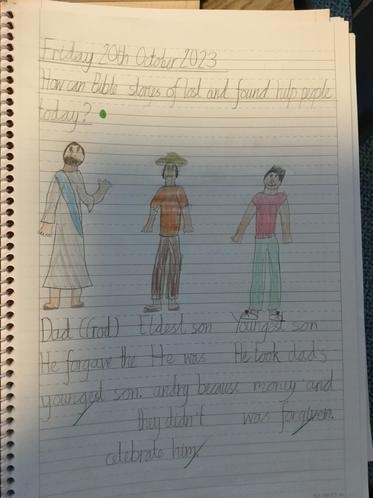 Friday 20th October 2023
How can Bible stories of lost and found help people
today?
Dad (God) Eldest son Youngest son
He forgave the He was He took dad's
youngest son. andry because money and
they didn't was forgiven.
celebrate him.